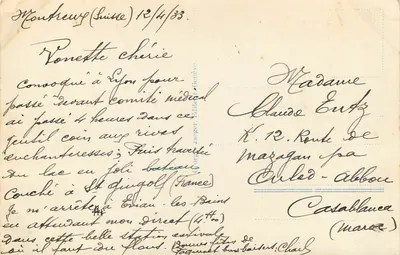 Montreux (Suisse) 12/4/33.
Ponette chérie
Convoqué à Lyon pour
passé devant comité médical
ai passé 4 heures dans ce
gentil coin aux rives
enchanteresses; Puis traversée
du lac en joli bateau
Couché à St Gingolf (France)
Je m'arrête à Evian-les-Bains
en attendant mon direct (4
Dans cette belle station estivale
où il fait
Bonnes
baisers, Charl
Madame
Claude Entz
K. 12. Route de
Mazagan pa
Ouled-Abbou
Casablanca
(Maroc)